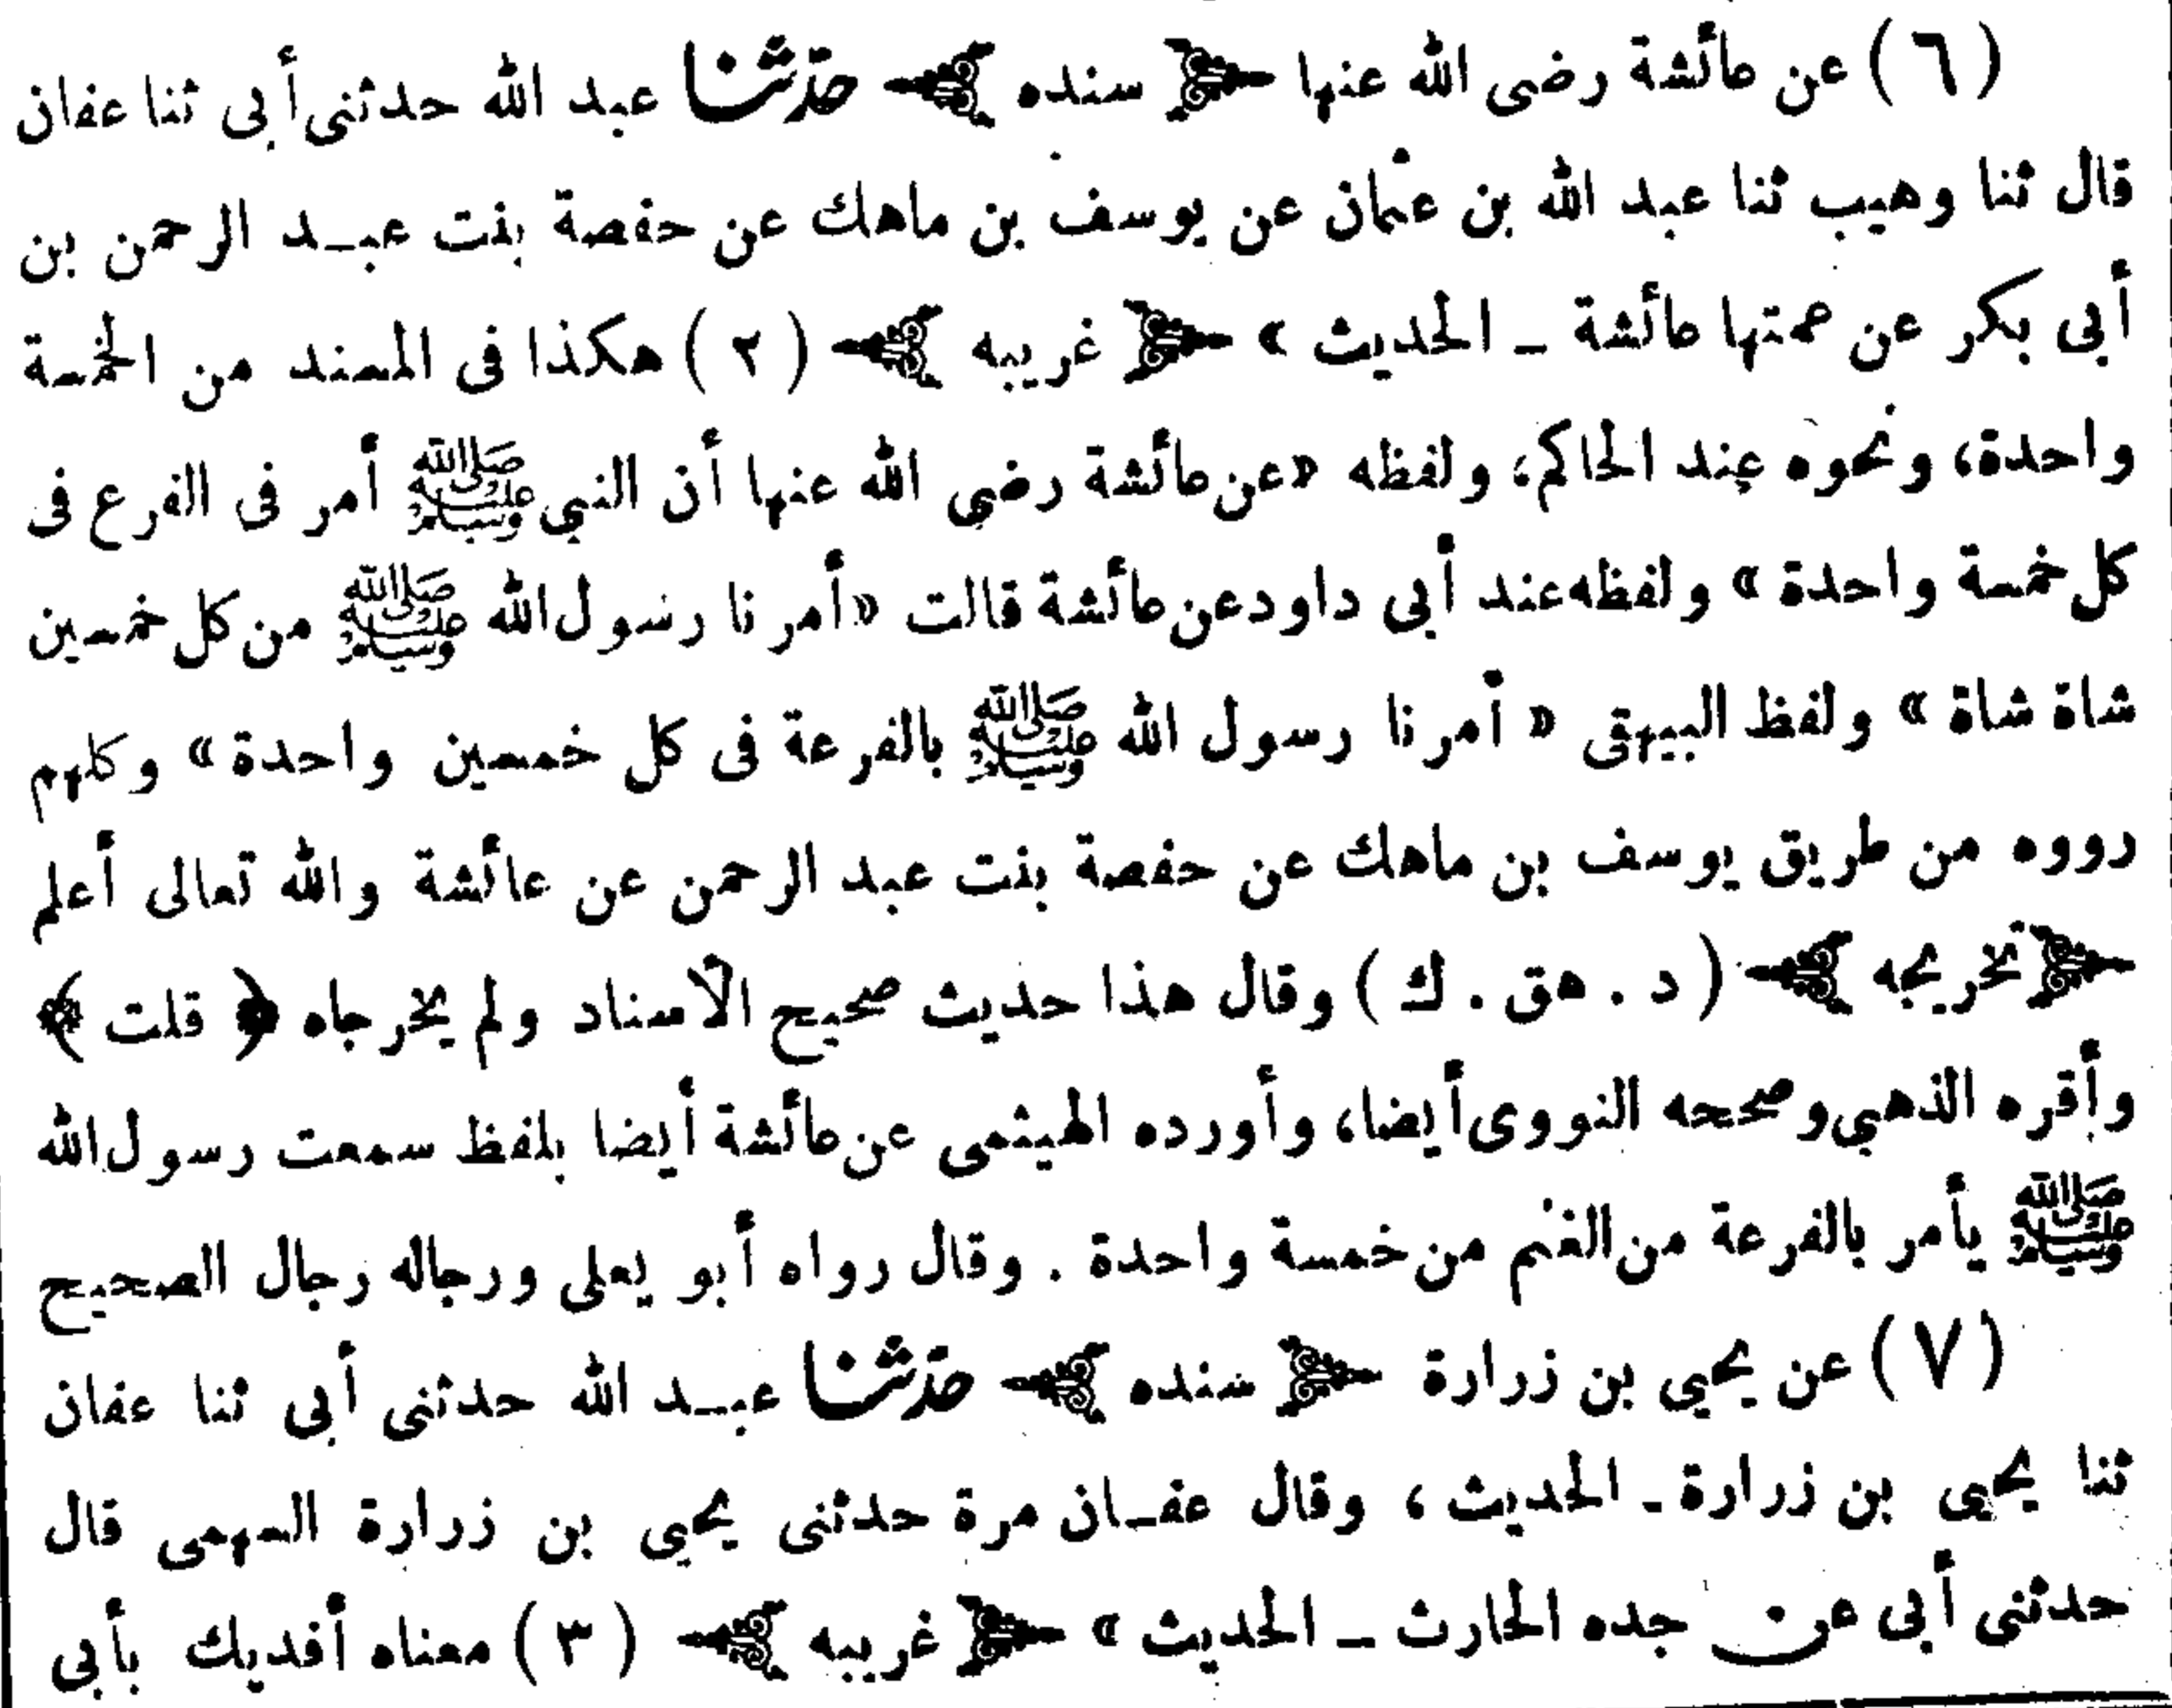 (٦) عن عائشة رضى الله عنها ﴿ سنده ﴾ حدّثنا عبد الله حدثنى أبى ثنا عفان
قال ثنا وهيب ثنا عبد الله بن عثمان عن يوسف بن ماهك عن حفصة بنت عبـد الرحمن بن
أبى بكر عن عمتها عائشة ـ الحديث » ﴿ غريبه ﴾ (٢) هكذا فى المسند من الخمسة
واحدة، ونحوه عند الحاكم، ولفظه «عن عائشة رضى الله عنها أن النبى ﷺ أمر فى الفرع فى
كل خمسة واحدة» ولفظه عند أبى داود عن عائشة قالت «أمرنا رسول الله ﷺ من كل خمسين
شاة شاة» ولفظ البيهقى « أمرنا رسول الله ﷺ بالفرعة فى كل خمسين واحدة» وكلهم
رووه من طريق يوسف بن ماهك عن حفصة بنت عبد الرحمن عن عائشة والله تعالى أعلم
﴿ تخريجه ﴾ (د . هق . ك) وقال هذا حديث صحيح الأسناد ولم يخرجاه ﴿ قلت ﴾
وأقره الذهبى وصححه النووى أيضا، وأورده الهيثمى عن عائشة أيضا بلفظ سمعت رسول الله
ﷺ يأمر بالفرعة من الغنم من خمسة واحدة . وقال رواه أبو يعلى ورجاله رجال الصحيح
(٧) عن يحيى بن زرارة ﴿ سنده ﴾ حدّثنا عبـد الله حدثنى أبى ثنا عفان
ثنا يحيى بن زرارة ـ الحديث ، وقال عفـان مرة حدثنى يحيى بن زرارة السهمى قال
حدثنى أبى عن جده الحارث ـ الحديث » ﴿ غريبه ﴾ (٣) معناه أفديك بأبى